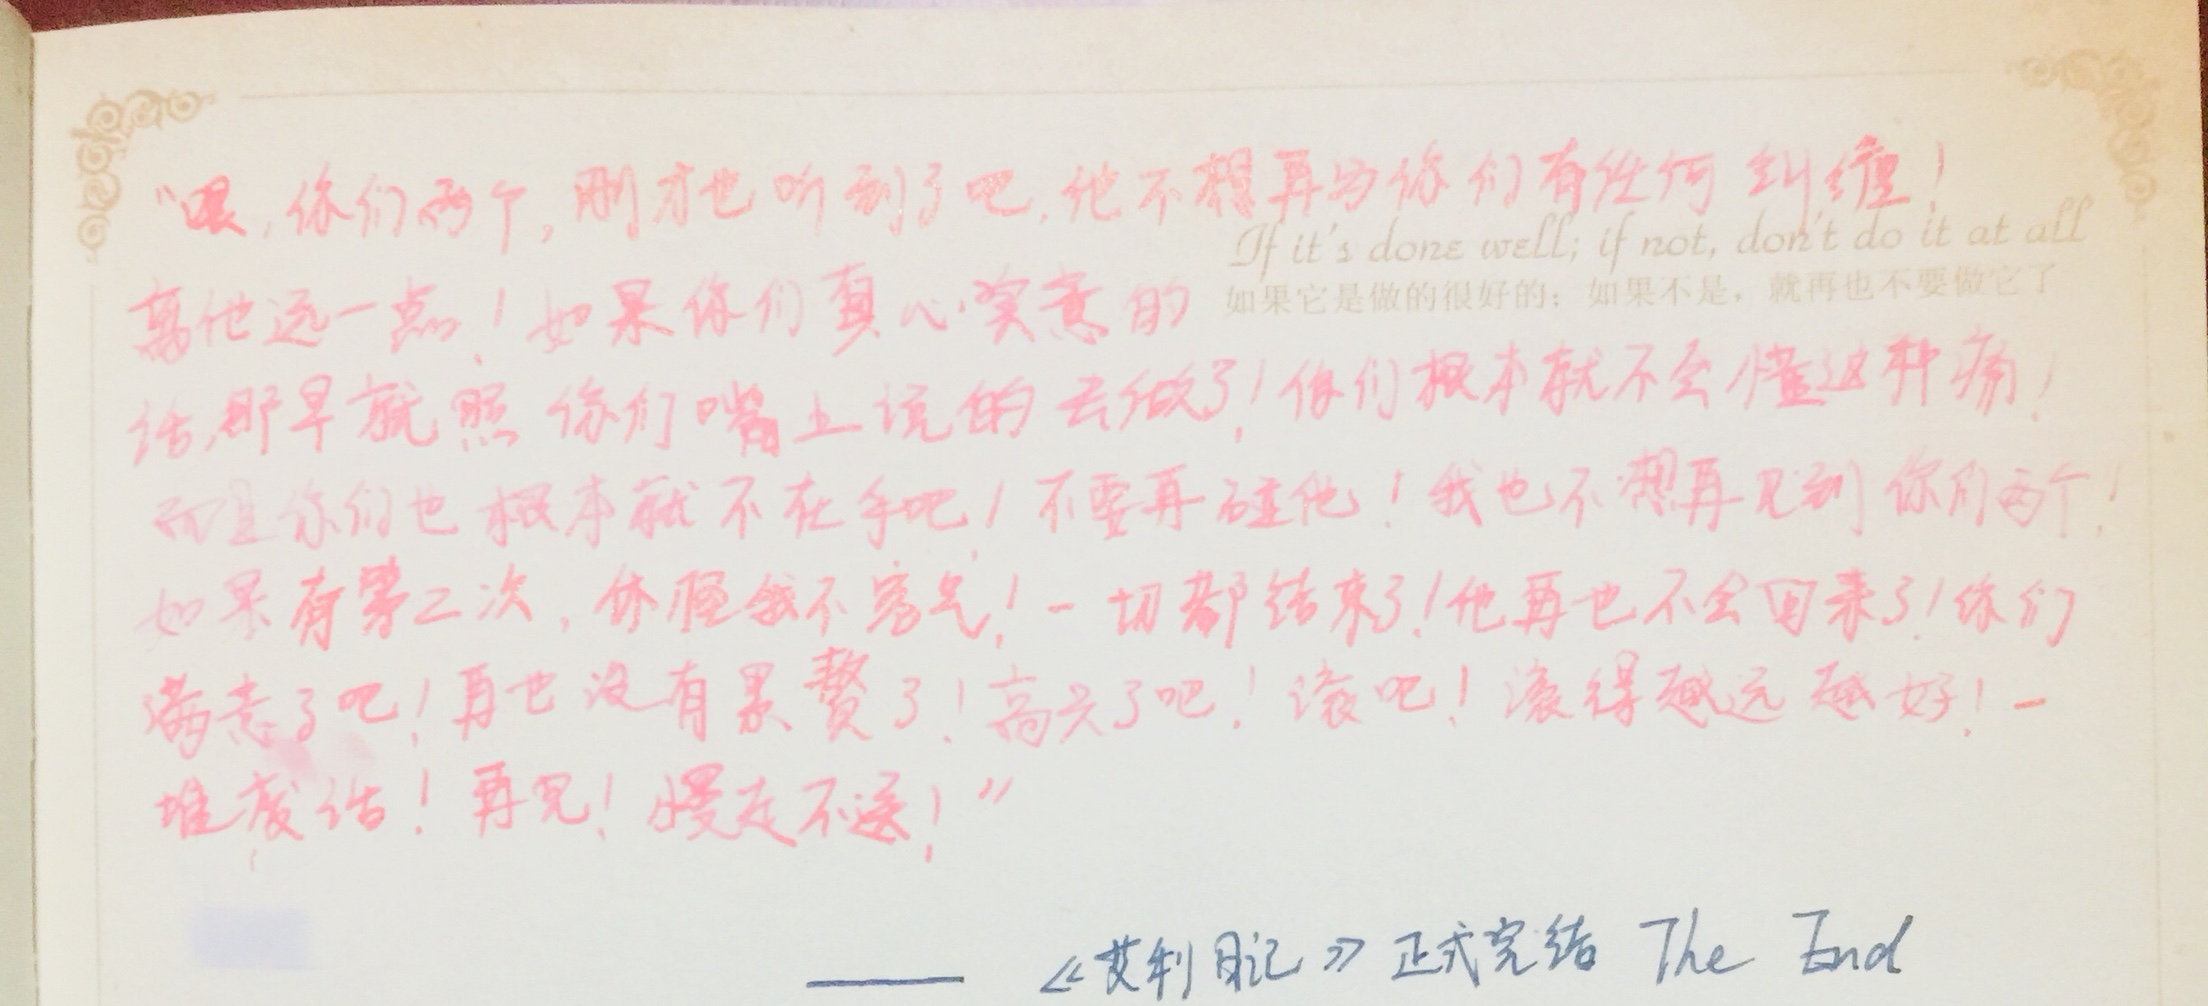 “喂,你们两个,刚才也听到了吧,他不想再与你们有任何纠缠!
If it's done well; if not, don't do it at all
离他远一点!如果你们真心实意的
如果它是做的很好的；如果不是，就再也不要做它了
话,那早就照你们嘴上说的去做了!你们根本就不会懂这种痛!
而且你们也根本就不在乎吧!不要再碰他!我也不想再见到你们两个!
如果有第二次,休怪我不客气!一切都结束了!他再也不会回来了!你们
满意了吧!再也没有累赘了!高兴了吧!滚吧!滚得越远越好!一
堆废话!再见!慢走不送!”
——《艾利日记》正式完结 The End